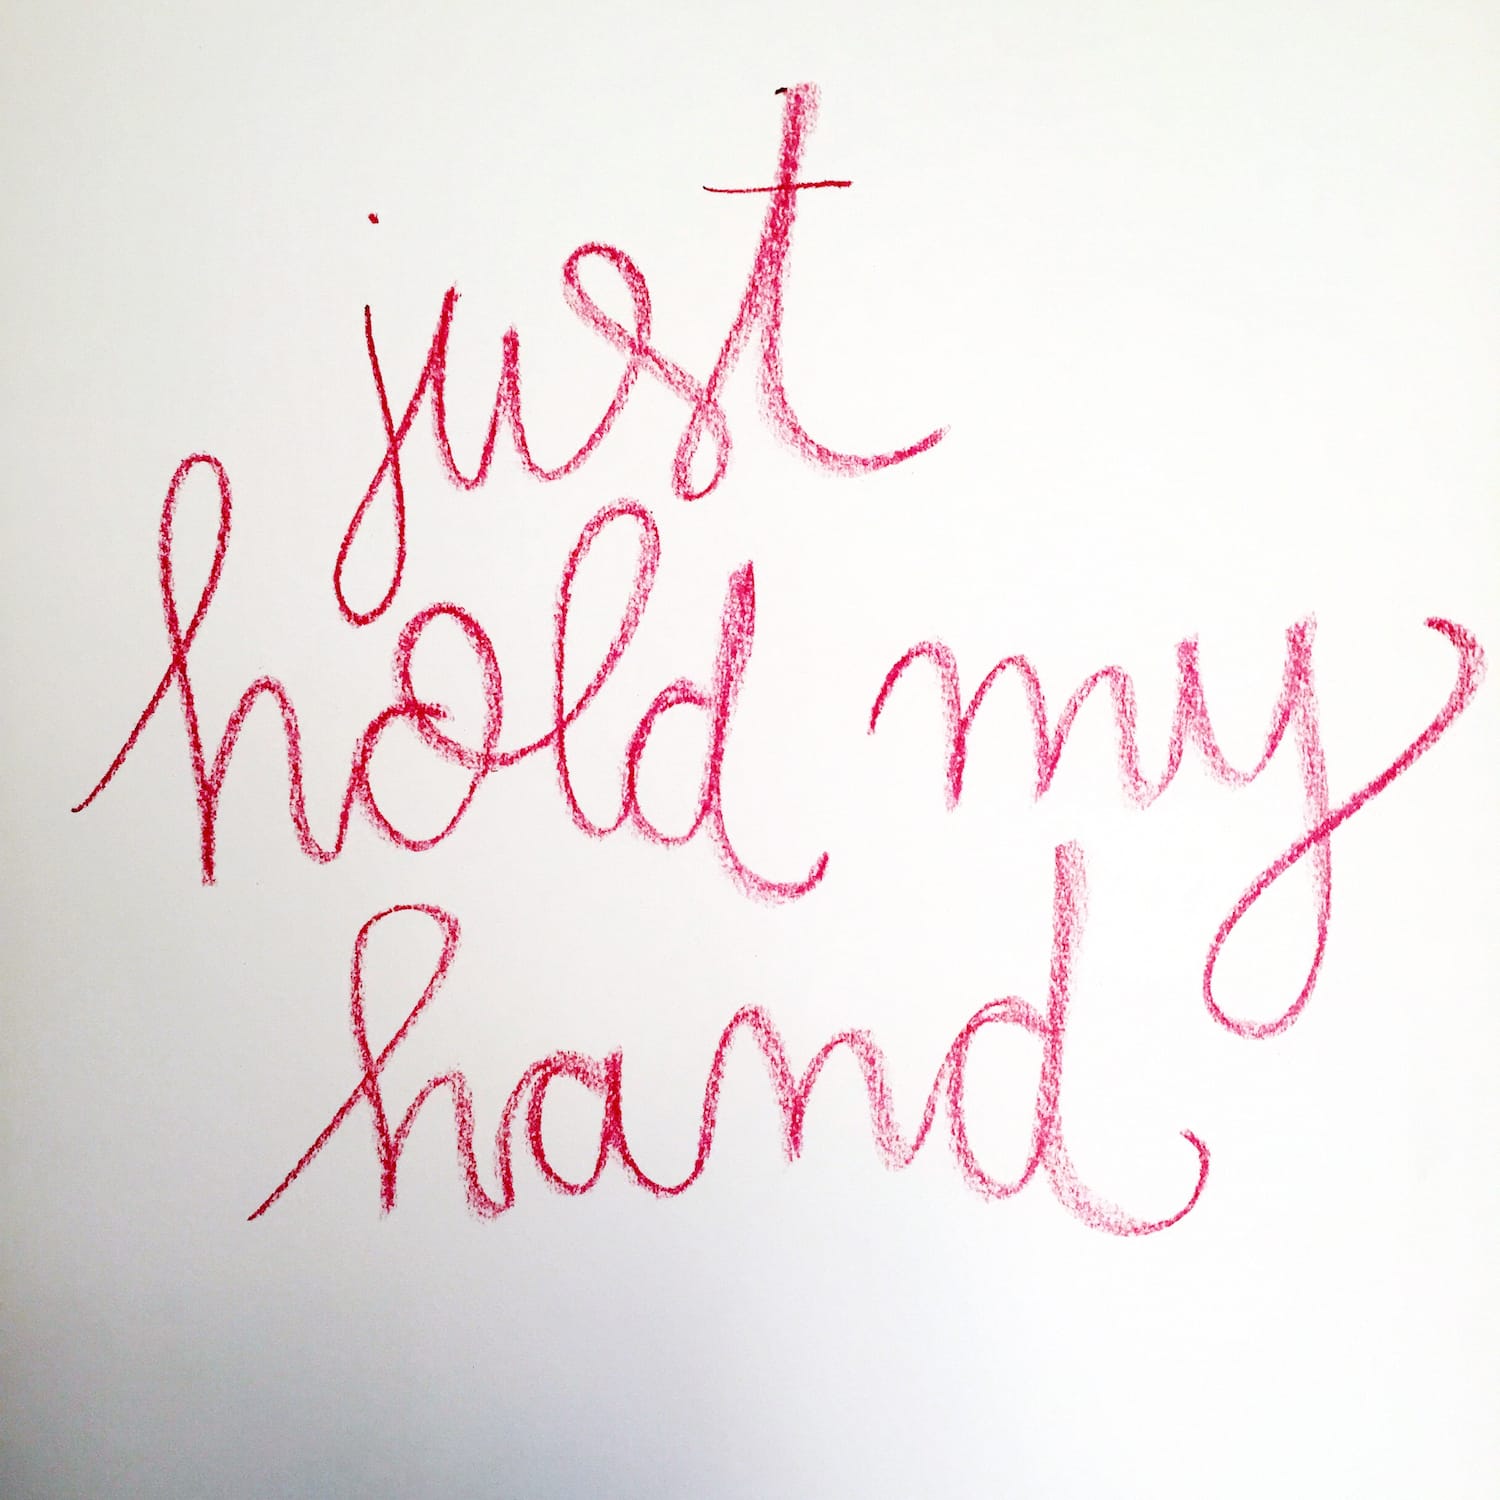 just
hold my
hand